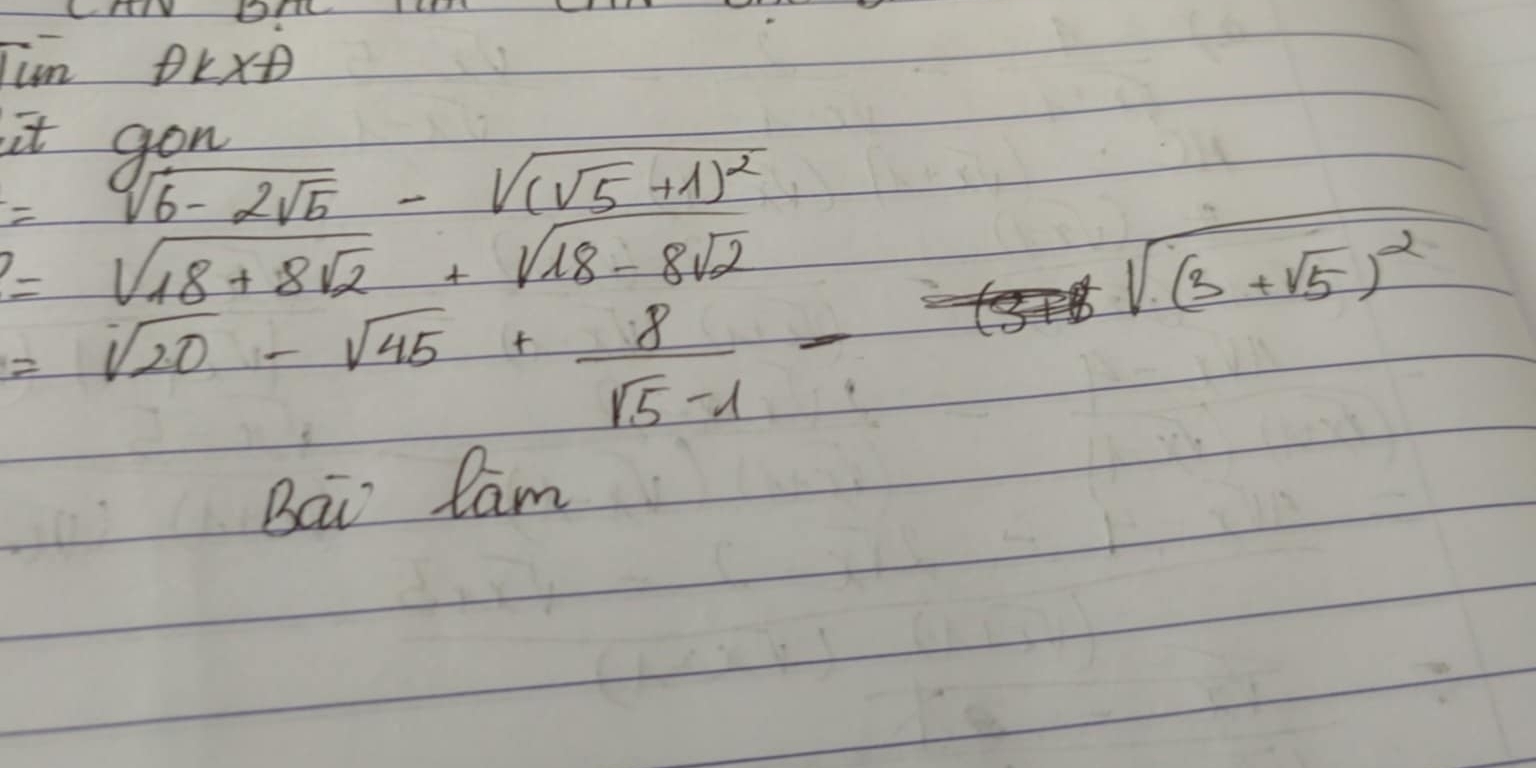 Tìm ĐKXĐ
gọn
= √(6 - 2√5) - √((√5 + 1)²)
= √(18 + 8√2) + √(18 - 8√2)
= √20 - √45 + 8/(√5 - 1) - √((3 + √5)²)
Bài làm